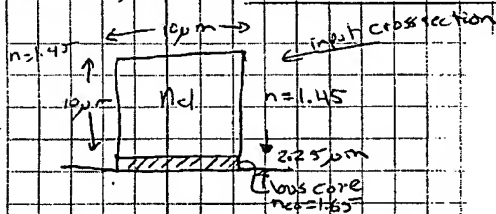 10μm
input crosssection
n=1.45
10μm
ncl
n=1.45
2.25μm
bus core
nco=1.65